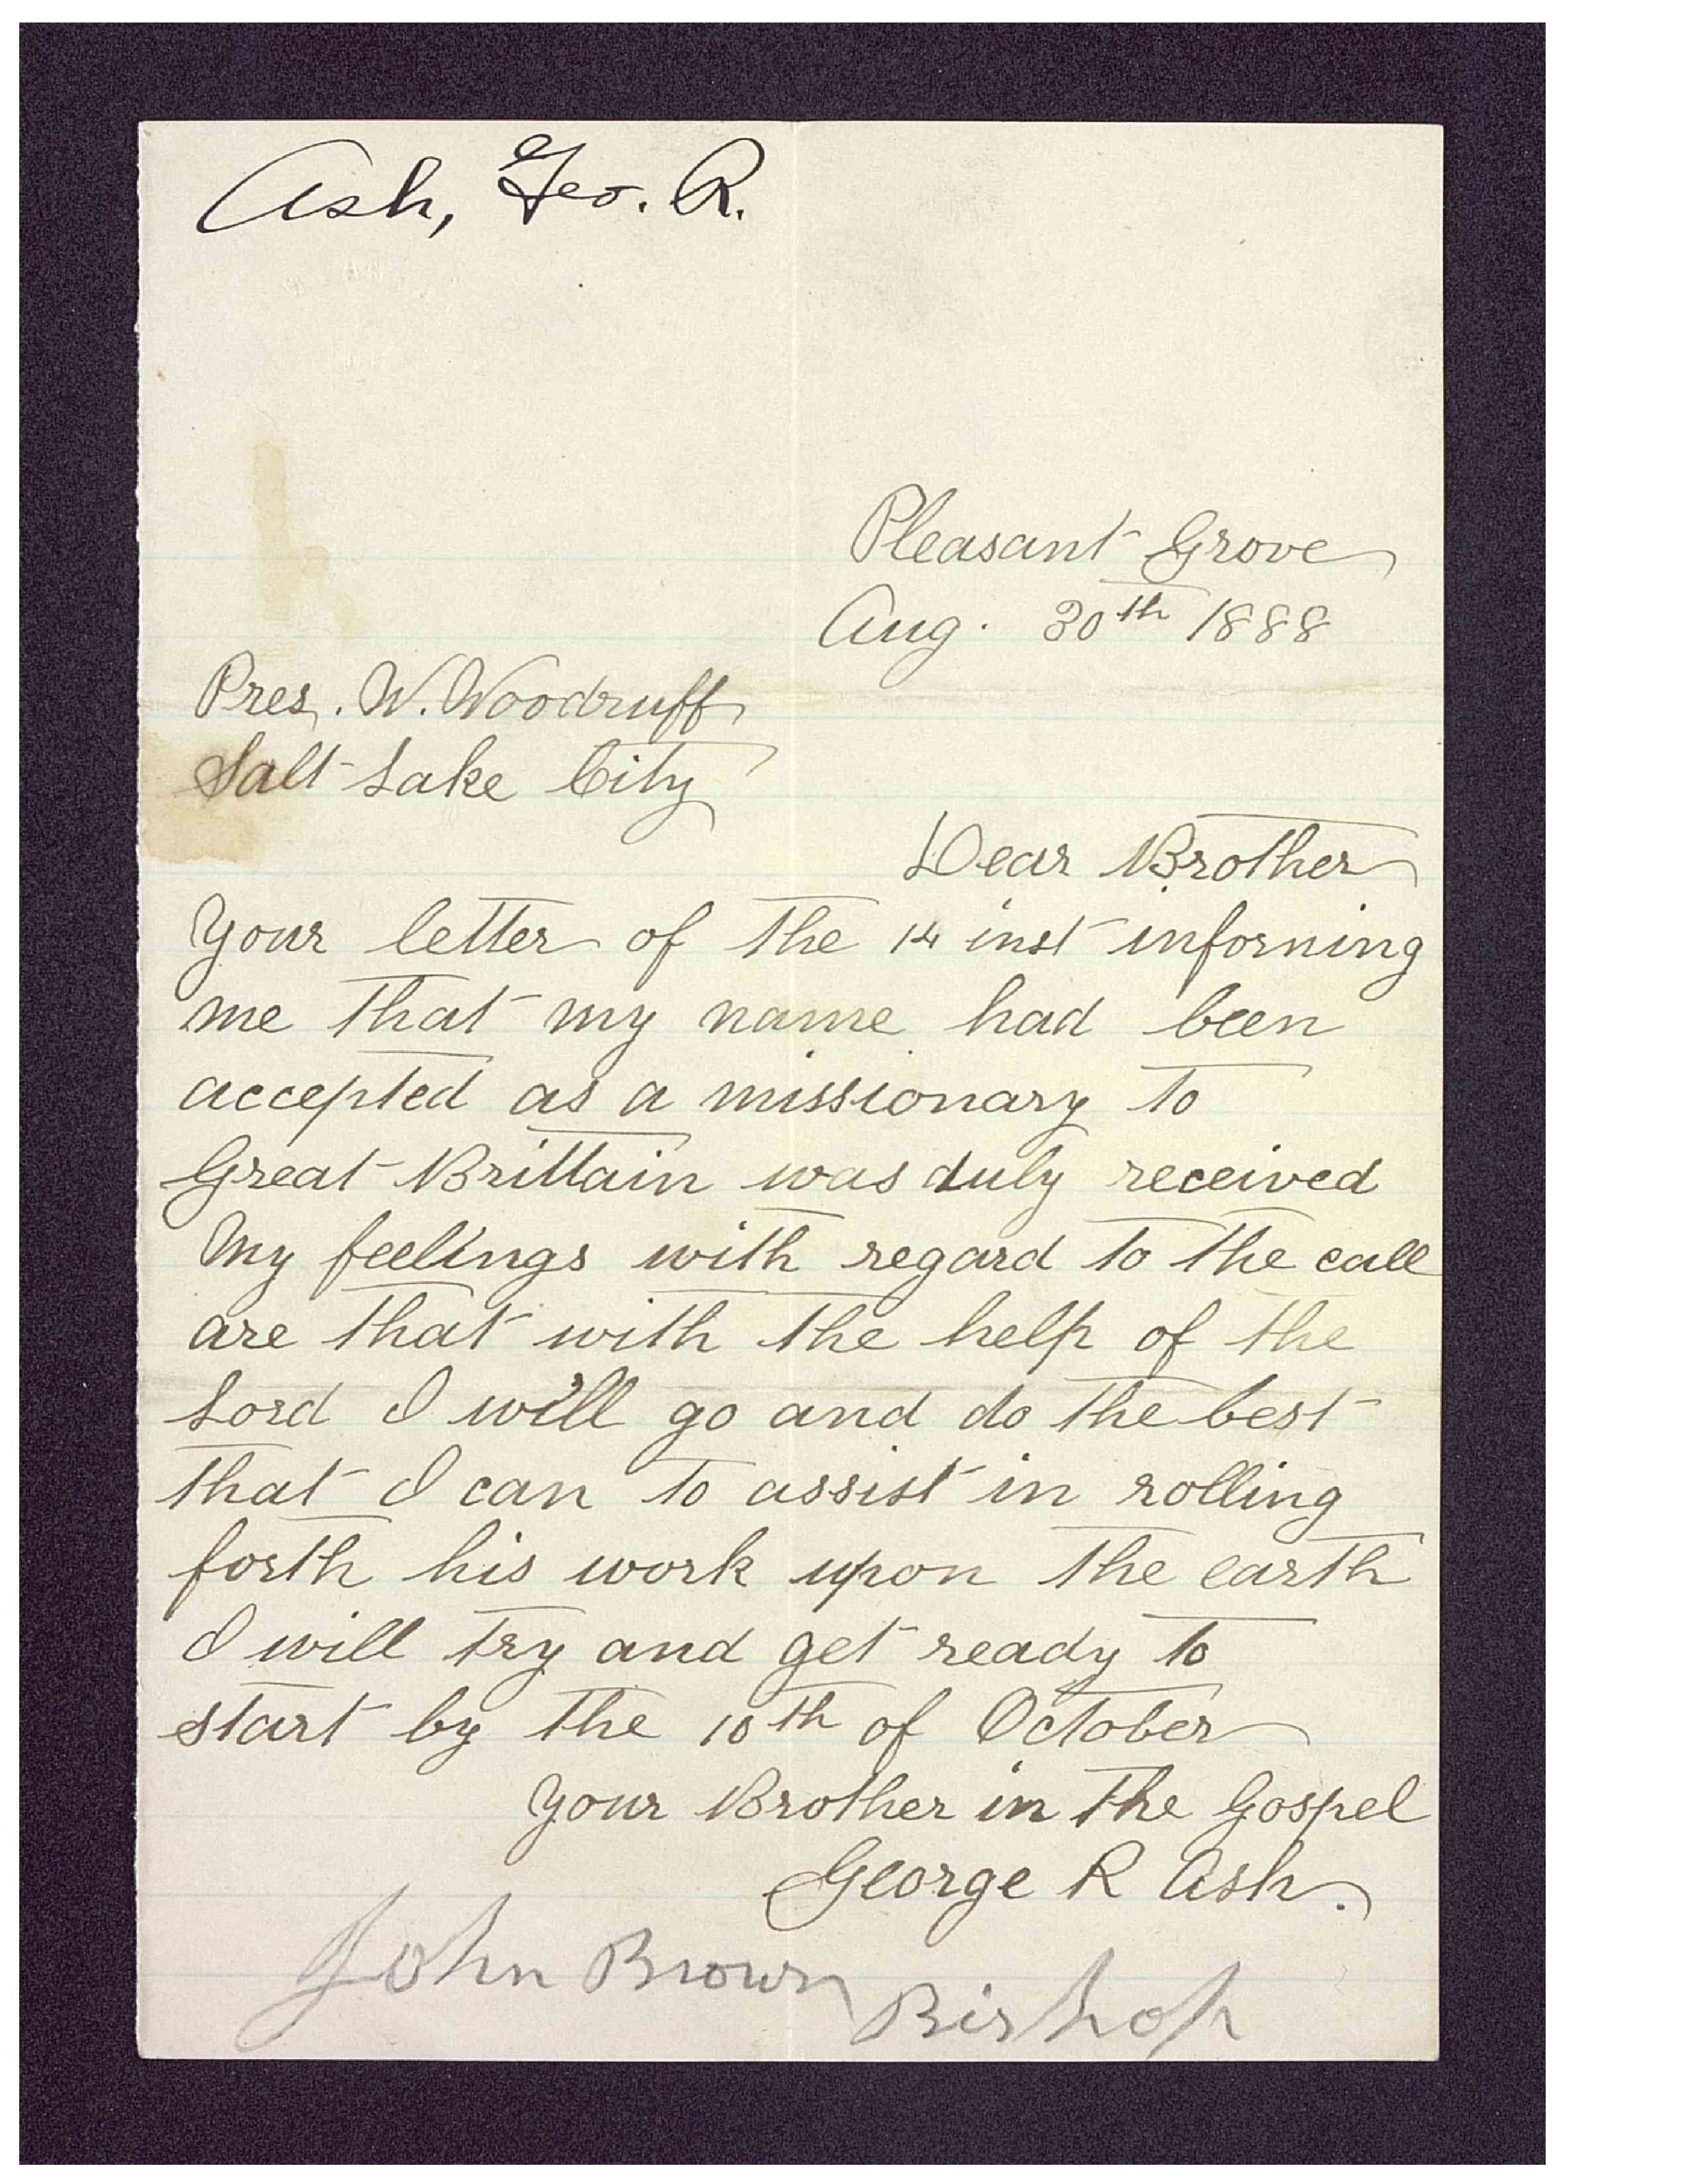 Ash, Geo. R.
Pleasant Grove
Aug. 30th 1888
Pres. W. Woodruff
Salt Lake City
Dear Brother
Your letter of the 14 inst inforning
me that my name had been
accepted as a missionary to
Great Brittain was duly received
My feelings with regard to the call
are that with the help of the
Lord I will go and do the best
that I can to assist in rolling
forth his work upon the earth
I will try and get ready to
start by the 10th of October
Your Brother in the Gospel
George R Ash.
John Brown
Bishop